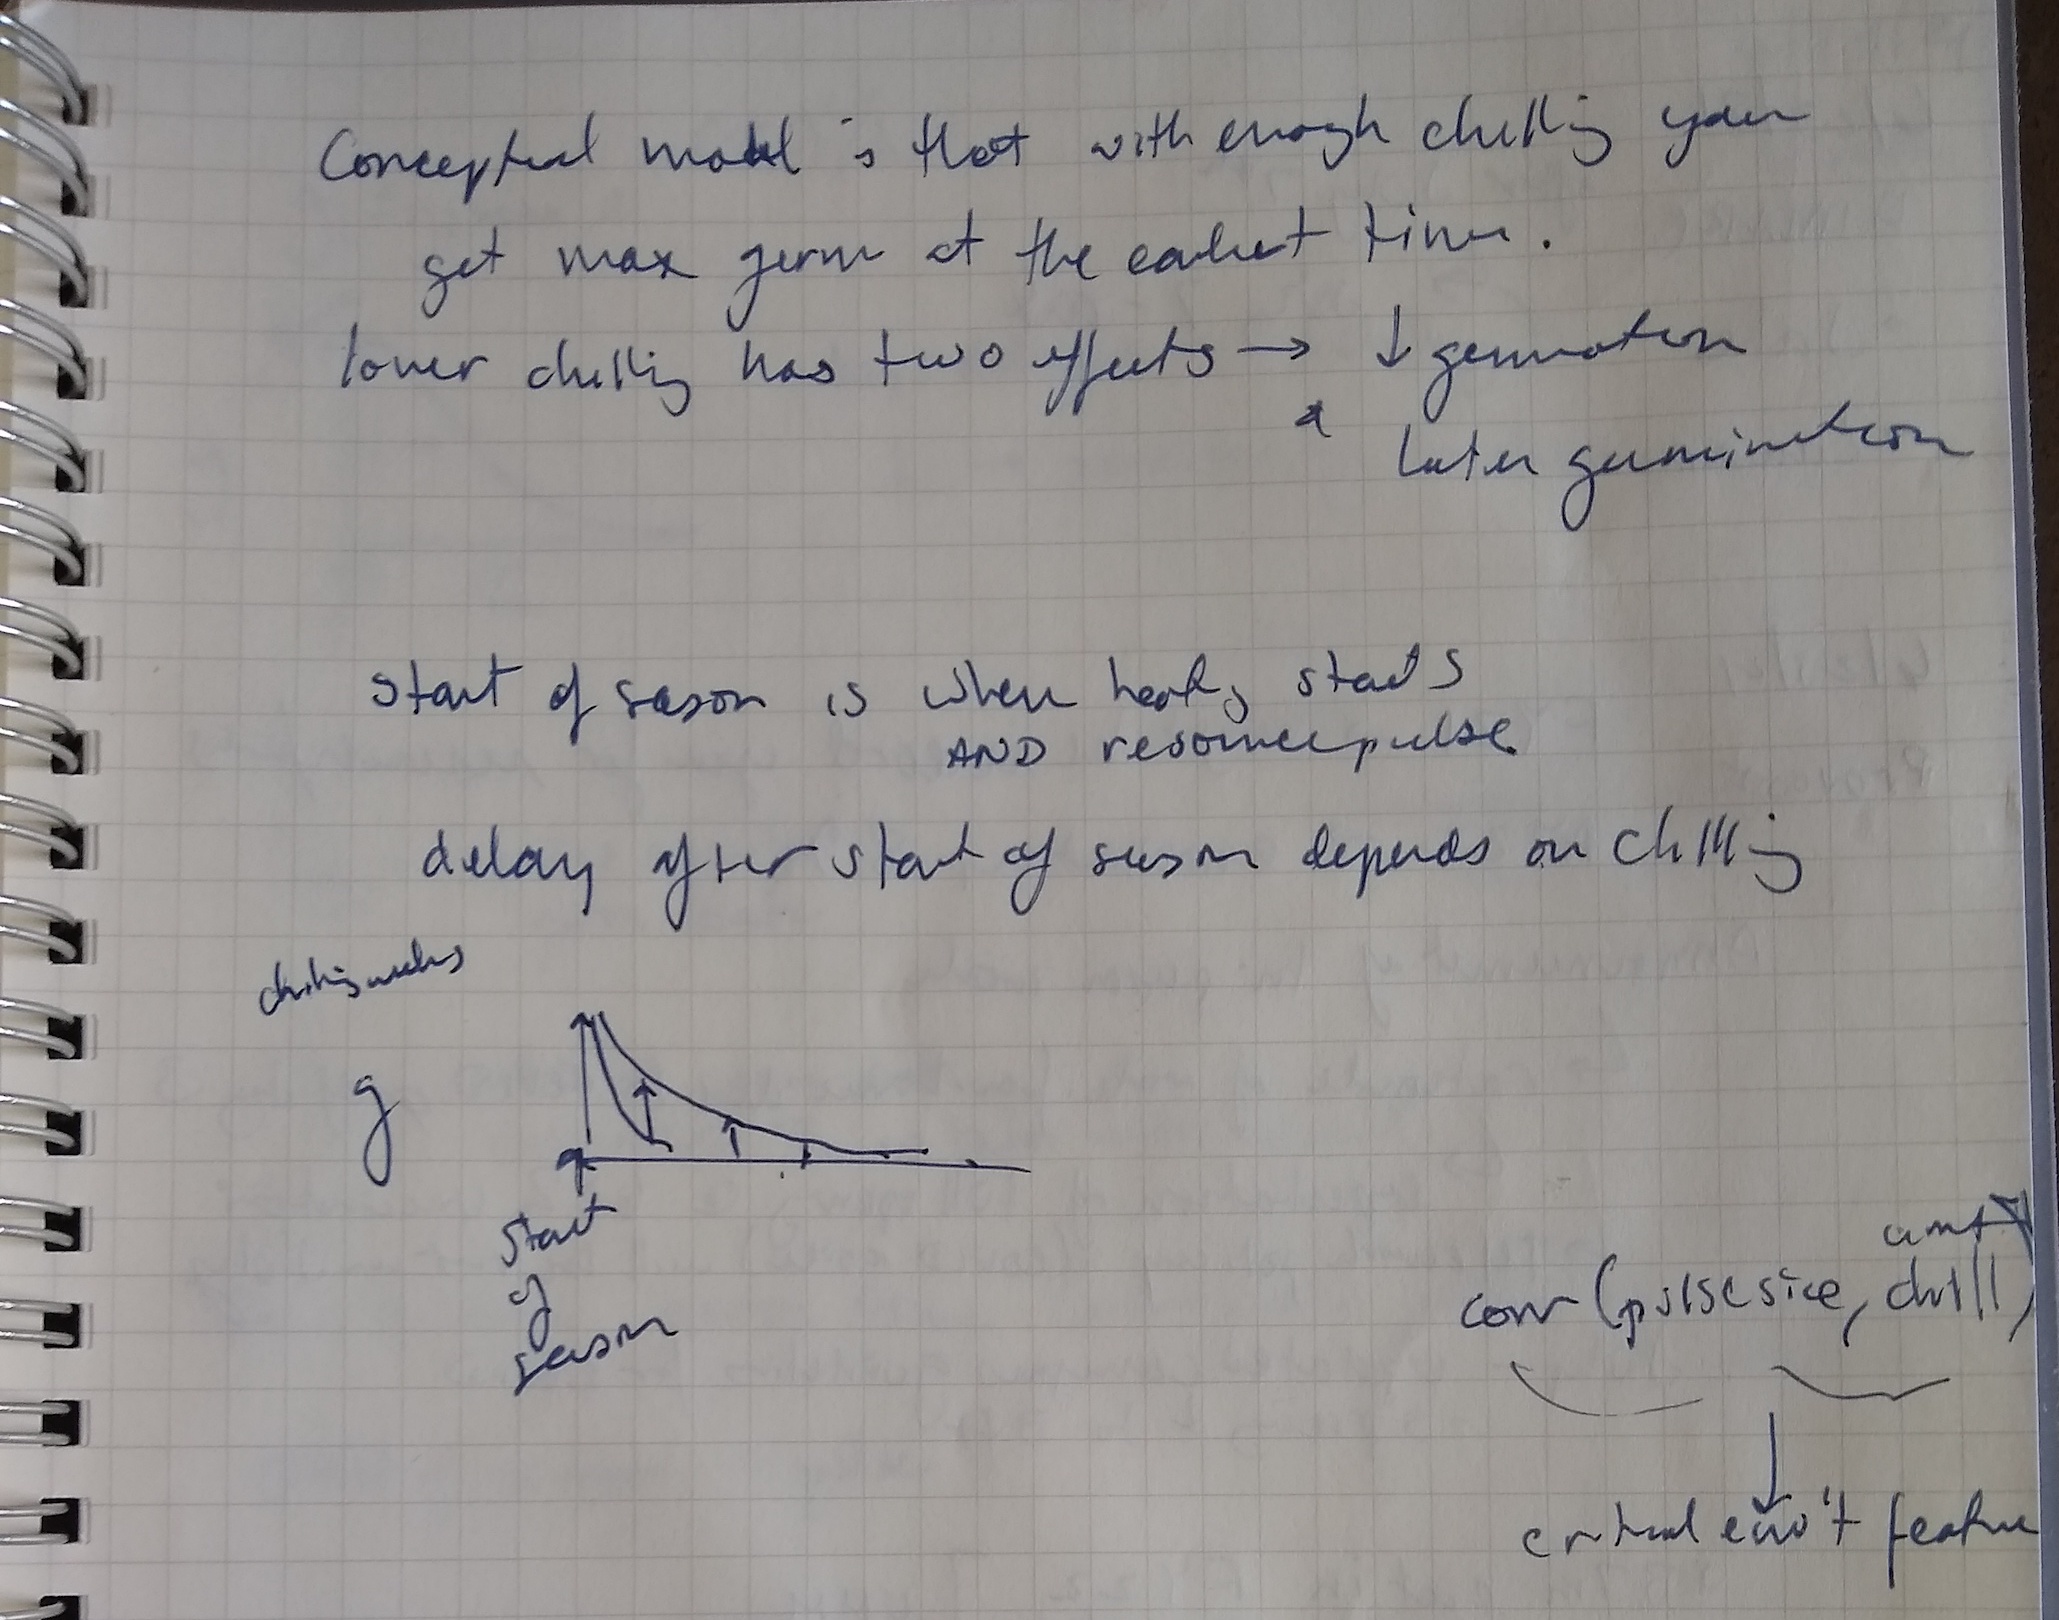 Conceptual model is that with enough chilling you
get max germ at the earliest time.
lower chilling has two effects → ↓ germination
&
later germination
start of season is when heating starts
AND resource pulse
delay after start of season depends on chilling
chilling weeks
g
start
of
season
amt
corr (pulse size, chill)
critical env't feature